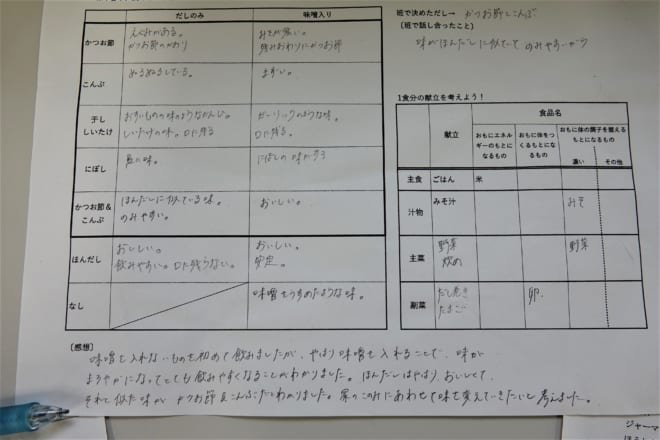 だしのみ 味噌入り
かつお節
えぐみがある。
かつお節のかおり
みそが強い。
飲みおわりにかつお節
こんぶ
ぬるぬるしている。
まずい。
干し
しいたけ
おすいものの味のようなかんじ。
しいたけの味。口に残る
ガーリックのような味。
口に残る。
にぼし
魚の味。
にぼしの味がする
かつお節&
こんぶ
ほんだしに似ている味。
のみやすい。
おいしい。
ほんだし
おいしい。
飲みやすい。口に残らない。
おいしい。
安定。
なし
味噌をうすめたような味。
班で決めただし→ かつお節とこんぶ
(班で話し合ったこと)
味がほんだしに似ていて のみやすいから
1食分の献立を考えよう!
献立 食品名
おもにエネルギーのもとになるもの
おもに体をつくるもとになるもの
おもに体の調子を整えるもとになるもの
濃い その他
主食 ごはん 米
汁物 みそ汁 みそ
主菜 野菜
炒め
野菜
副菜 だし巻き
たまご
卵
[感想]
味噌を入れないものを初めて飲みましたが、やはり味噌を入れることで、味が
まろやかになってとても飲みやすくなることがわかりました。ほんだしはやはり、おいしくて、
それと似た味が かつお節&こんぶだとわかりました。家のこのみにあわせて味を変えていきたいと考えました。
ジャーマ